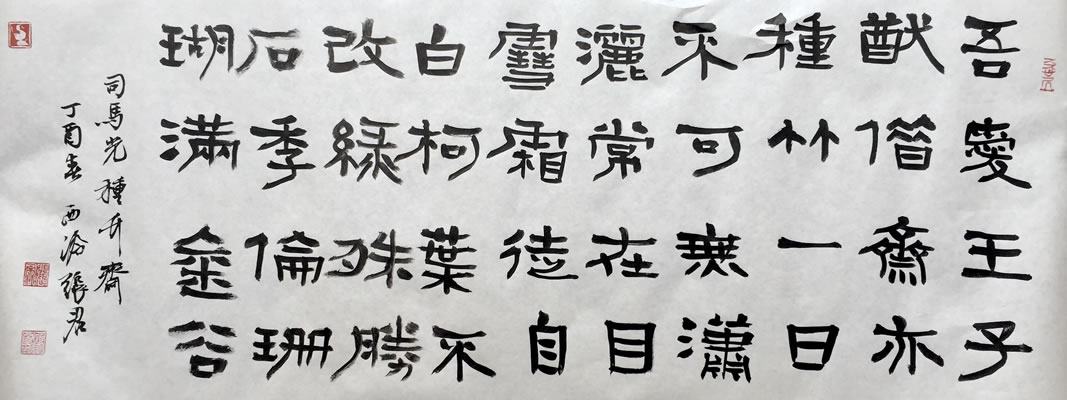 吾愛王子
猷借齋亦
種竹一日
不可無瀟
灑常在目
雪霜徒自
白柯葉不
改綠殊勝
石季倫珊
瑚滿金谷
司馬光種竹齋
丁酉春西張君